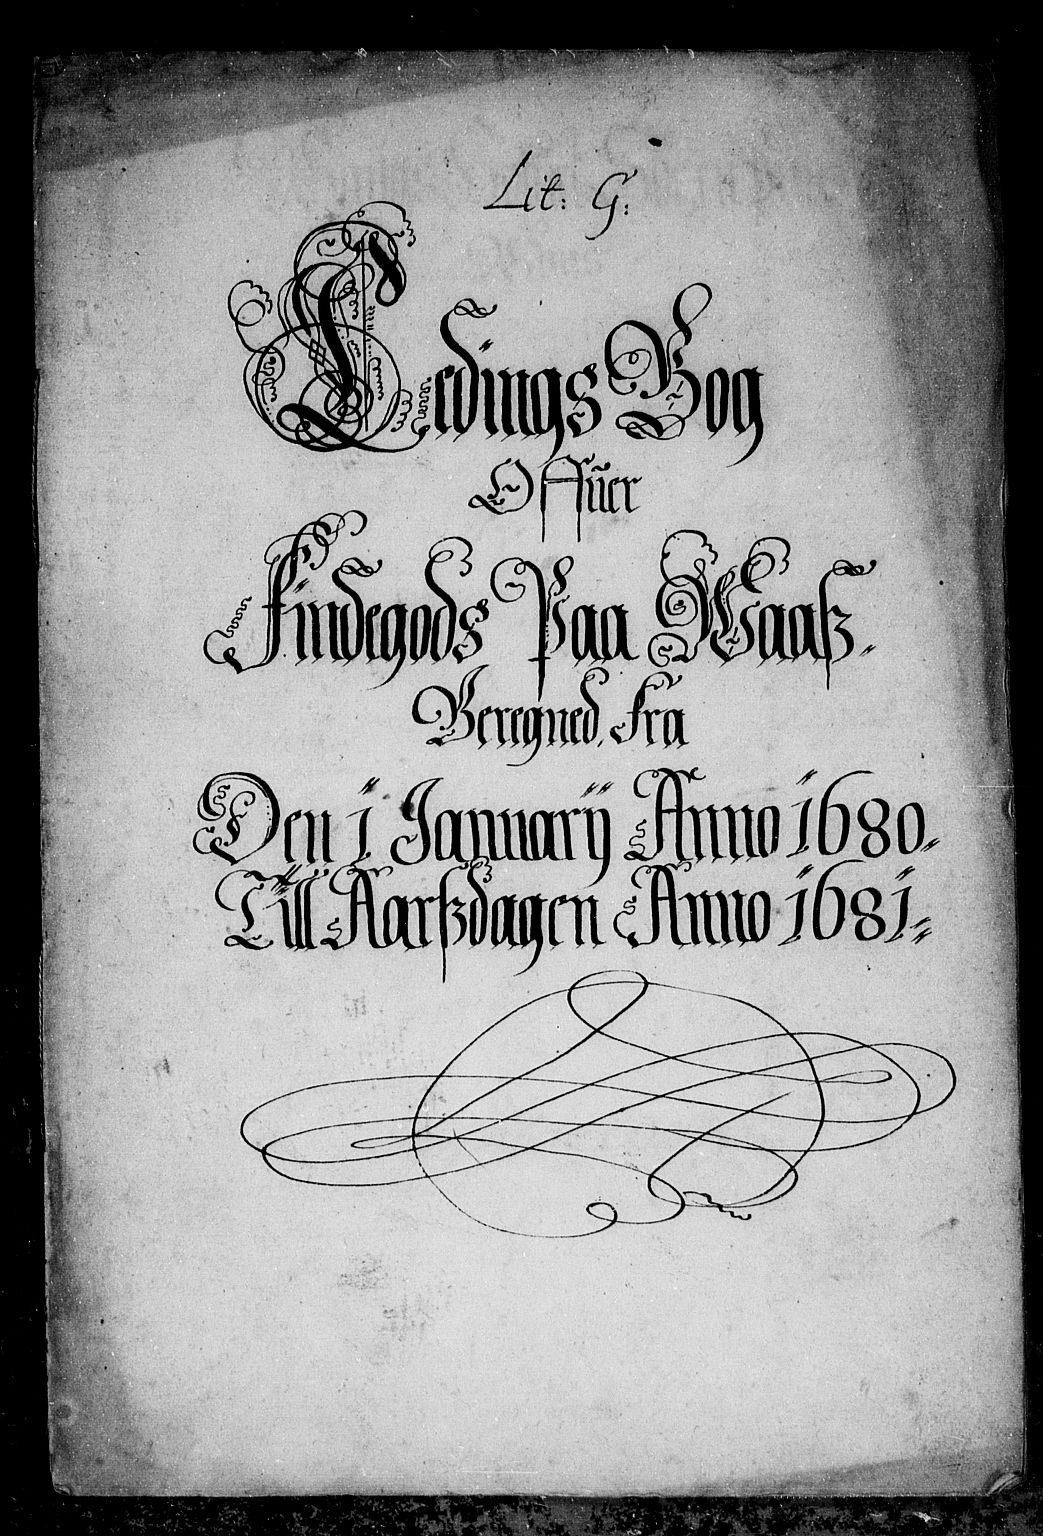 Lit: G:
Ledings Bog
Offuer
Findegods Paa Waaß.
Beregned, Fra
Den 1 Januarÿ Anno 1680.
Till Aarßdagen Anno 1681.